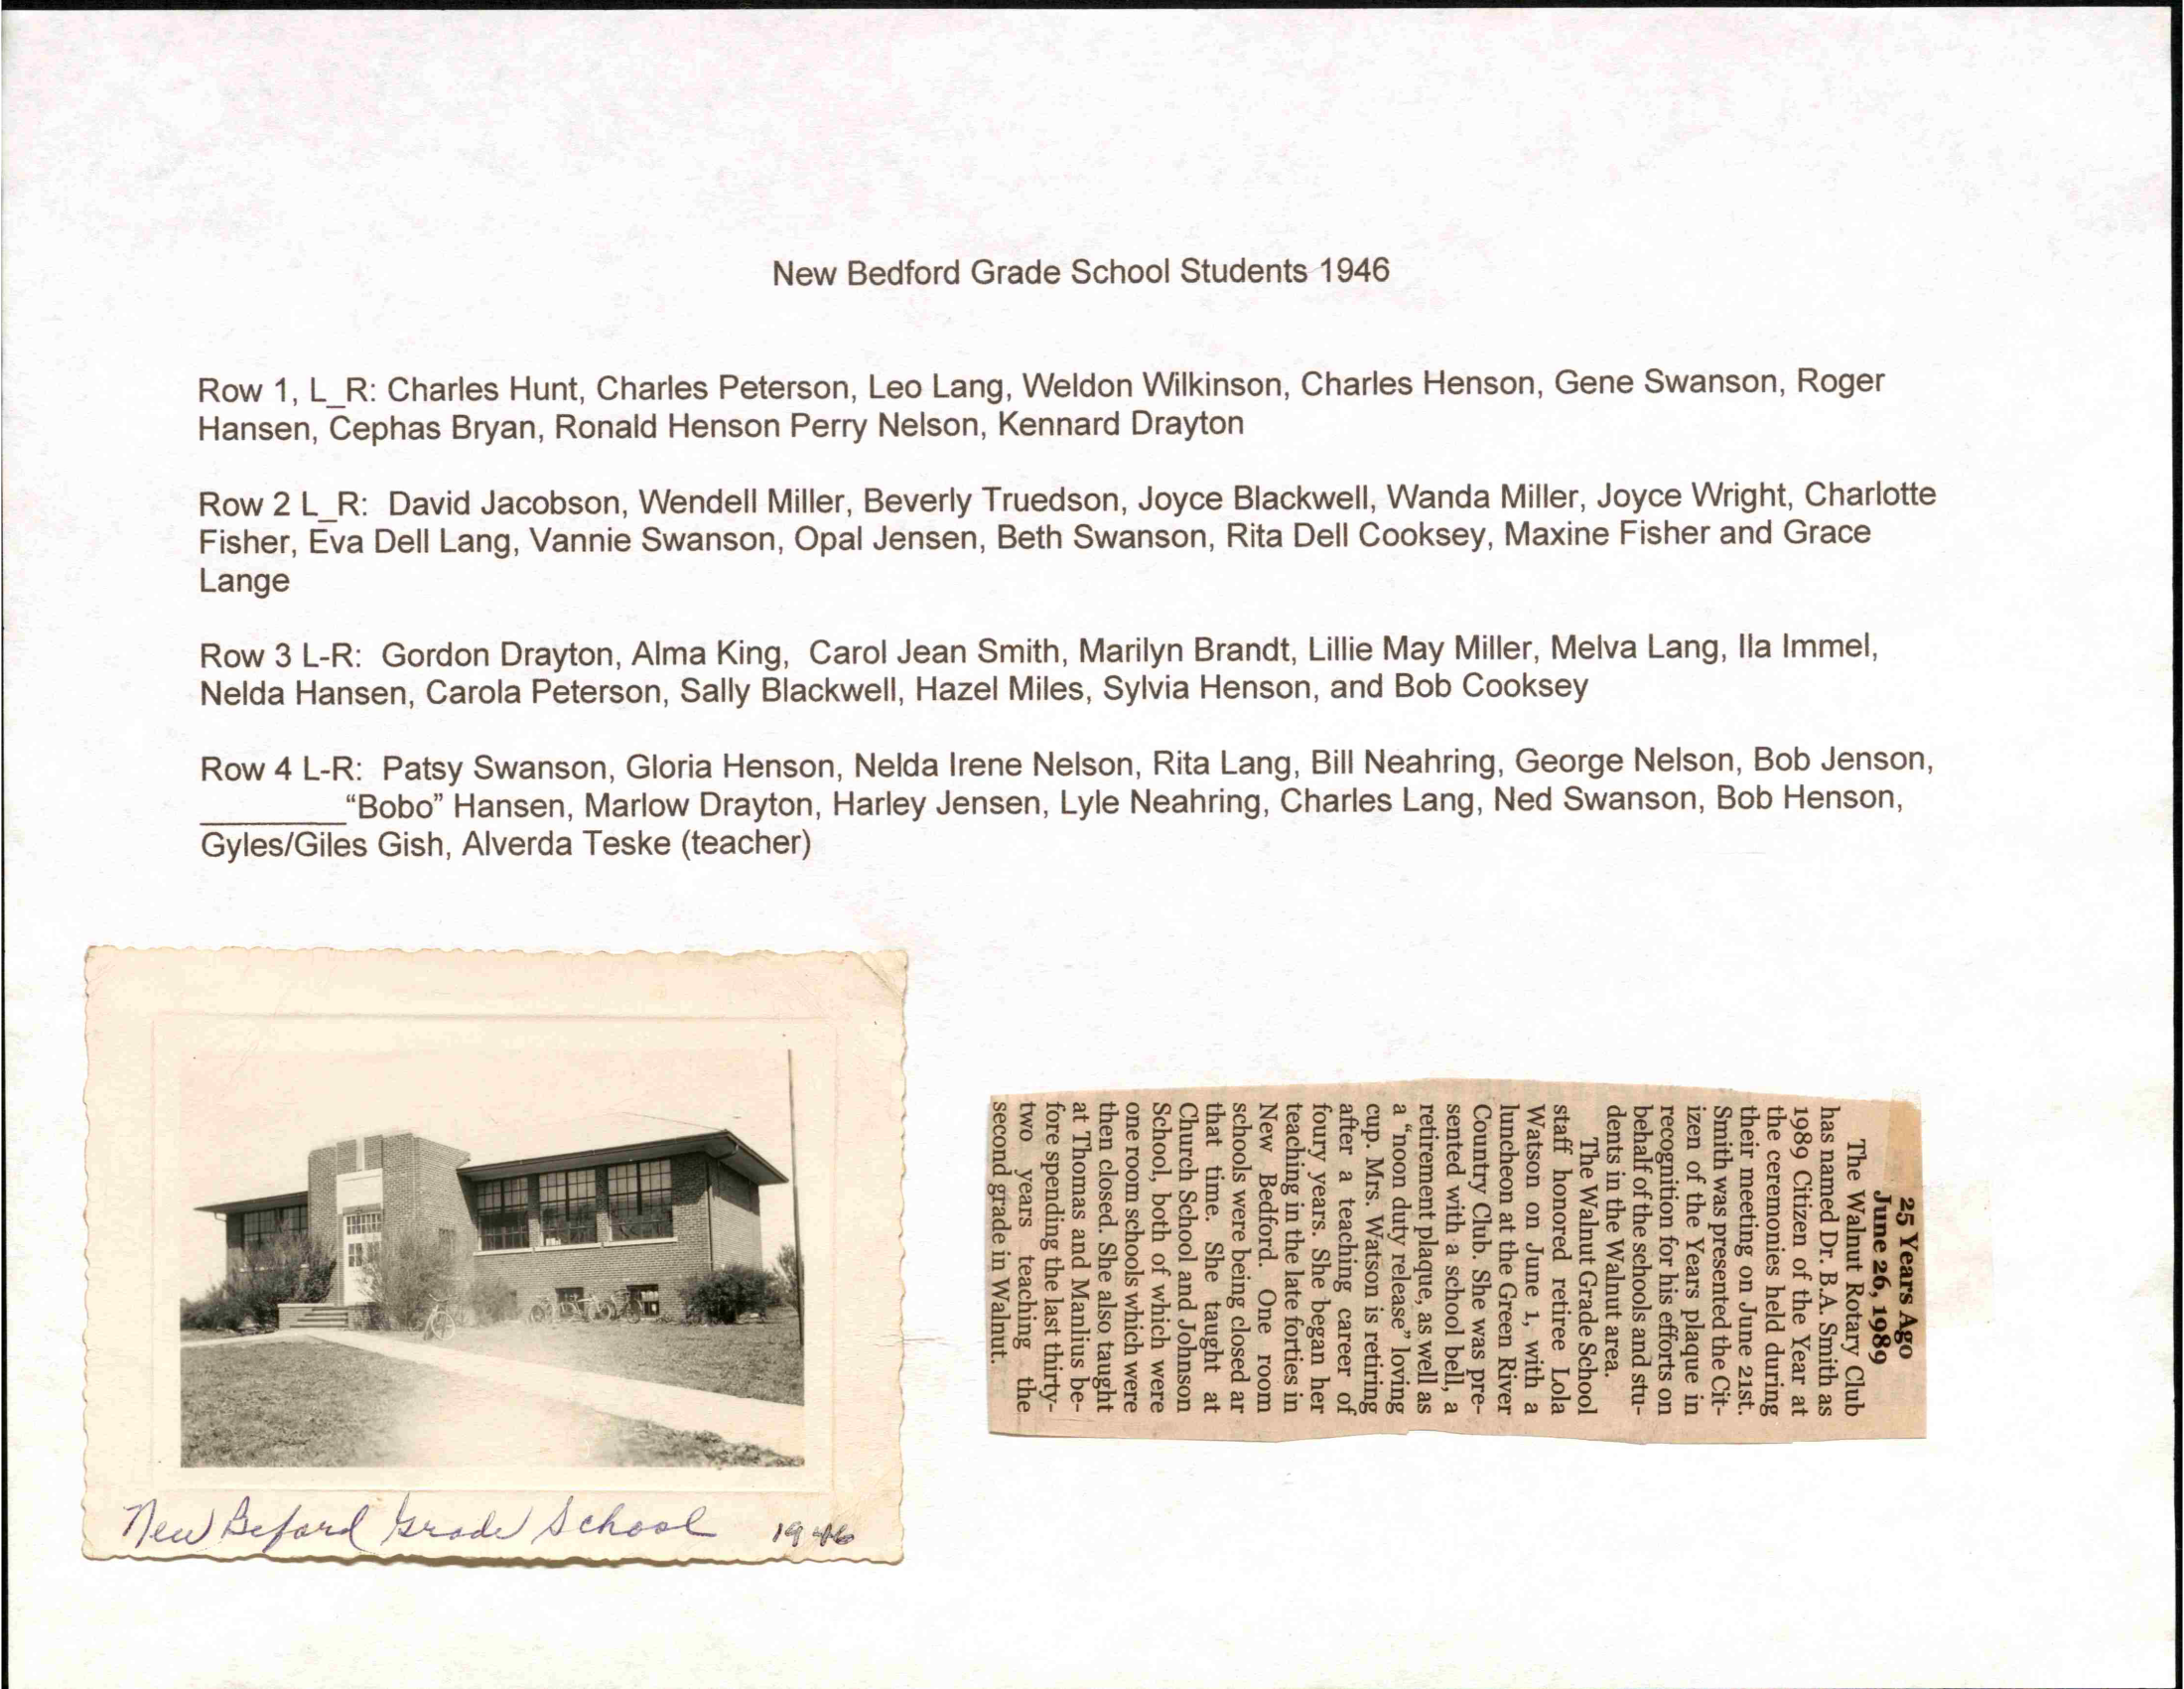 New Bedford Grade School Students 1946
Row 1, L_R: Charles Hunt, Charles Peterson, Leo Lang, Weldon Wilkinson, Charles Henson, Gene Swanson, Roger
Hansen, Cephas Bryan, Ronald Henson Perry Nelson, Kennard Drayton
Row 2 L_R: David Jacobson, Wendell Miller, Beverly Truedson, Joyce Blackwell, Wanda Miller, Joyce Wright, Charlotte
Fisher, Eva Dell Lang, Vannie Swanson, Opal Jensen, Beth Swanson, Rita Dell Cooksey, Maxine Fisher and Grace
Lange
Row 3 L-R: Gordon Drayton, Alma King, Carol Jean Smith, Marilyn Brandt, Lillie May Miller, Melva Lang, Ila Immel,
Nelda Hansen, Carola Peterson, Sally Blackwell, Hazel Miles, Sylvia Henson, and Bob Cooksey
Row 4 L-R: Patsy Swanson, Gloria Henson, Nelda Irene Nelson, Rita Lang, Bill Neahring, George Nelson, Bob Jenson,
_________“Bobo” Hansen, Marlow Drayton, Harley Jensen, Lyle Neahring, Charles Lang, Ned Swanson, Bob Henson,
Gyles/Giles Gish, Alverda Teske (teacher)
New Beford Grade School 1946
25 Years Ago
June 26, 1989
The Walnut Rotary Club
has named Dr. B.A. Smith as
1989 Citizen of the Year at
the ceremonies held during
their meeting on June 21st.
Smith was presented the Cit-
izen of the Years plaque in
recognition for his efforts on
behalf of the schools and stu-
dents in the Walnut area.
The Walnut Grade School
staff honored retiree Lola
Watson on June 1, with a
luncheon at the Green River
Country Club. She was pre-
sented with a school bell, a
retirement plaque, as well as
a “noon duty release” loving
cup. Mrs. Watson is retiring
after a teaching career of
foury years. She began her
teaching in the late forties in
New Bedford. One room
schools were being closed ar
that time. She taught at
Church School and Johnson
School, both of which were
one room schools which were
then closed. She also taught
at Thomas and Manlius be-
fore spending the last thirty-
two years teaching the
second grade in Walnut.